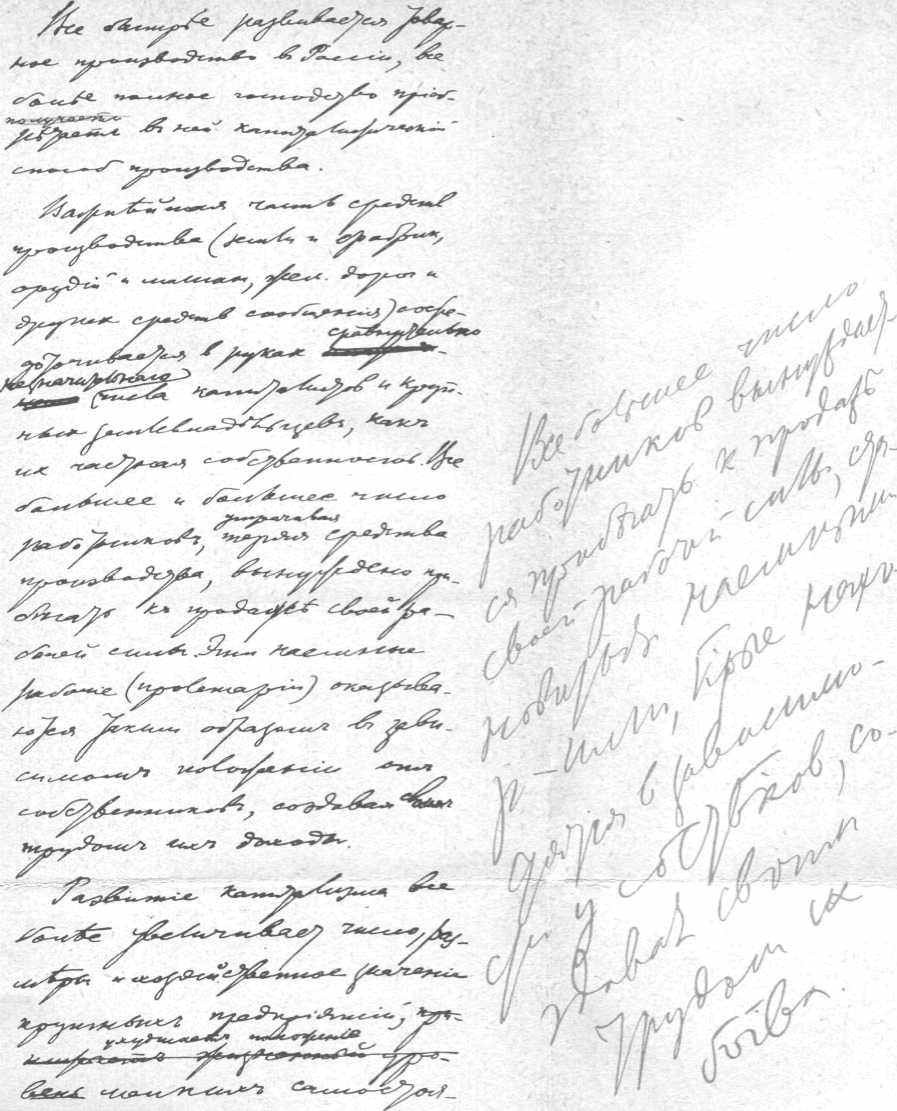 Все быстрѣе развивается товар-
ное производство в Россiи, все
болѣе полное господство прiоб-
получаетъ
рѣтаетъ в ней капиталистическiй
способ производства.
Важнѣйшая часть средств
производства (земли и фабрик,
орудiй и машин, жел. дорог и
других средств сообщенiя) сосре-
доточивается в руках сравнительно
незначительнаго
числа капиталистов и круп-
ных землевладѣльцевъ, какъ
их частная собственность. Все
большее и большее число
утрачивая
работниковъ, теряя средства
производства, вынуждено при-
бѣгать къ продажѣ своей ра-
бочей силы. Эти наемные
рабочiе (пролетарiи) оказыва-
ются таким образомъ въ зави-
симомъ положенiи отъ
собственниковъ, создавая своимъ
трудомъ ихъ доходы.
Развитiе капитализма все
болѣе увеличивает число, раз-
мѣры и хозяйственное значенiе
крупныхъ предпрiятiй,
ухудшаетъ положенiе
жизненный уро-
вень мелкихъ самостоя-
Все большее число
работников вынуждает
ся прибѣгать к продажѣ
своей рабочей силы, ста-
новиться наемными
р-ими, крые нахо
дятся в зависимо-
сти у собств-ков, со-
здавая своим
трудом их
бог-ва.